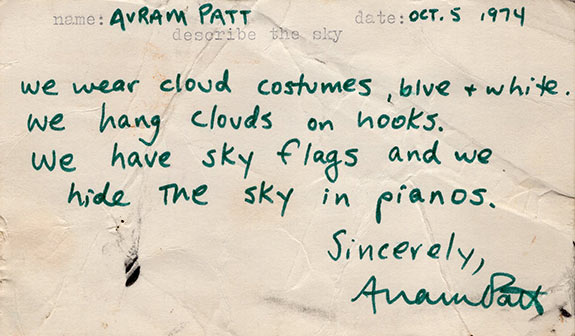 name: AVRAM PATT date: OCT. 5 1974
describe the sky
we wear cloud costumes, blue + white.
we hang clouds on hooks.
we have sky flags and we
hide the sky in pianos.
Sincerely,
Avram Patt